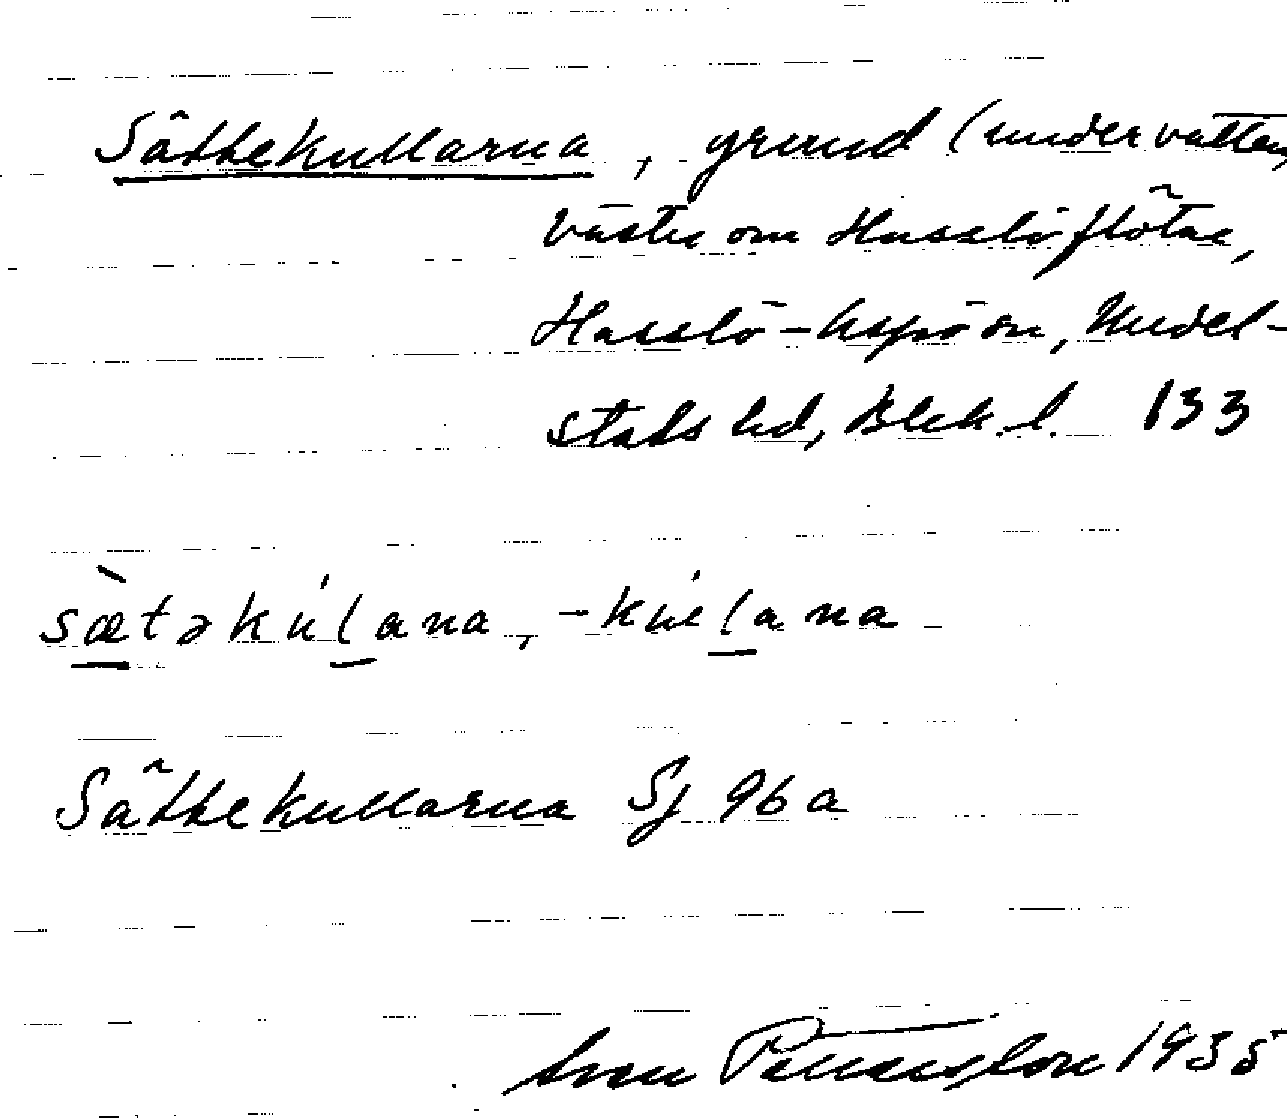 Sättekullarna, grund (under vatten,
väster om Hasslöflötar,
Hasslö-Aspöön, Medel-
stads hd, Blek. l. 133
sæ̀təkúlana, -kúɐlana
Sättekullarna Sj 96 a
Sven Pettersson 1935